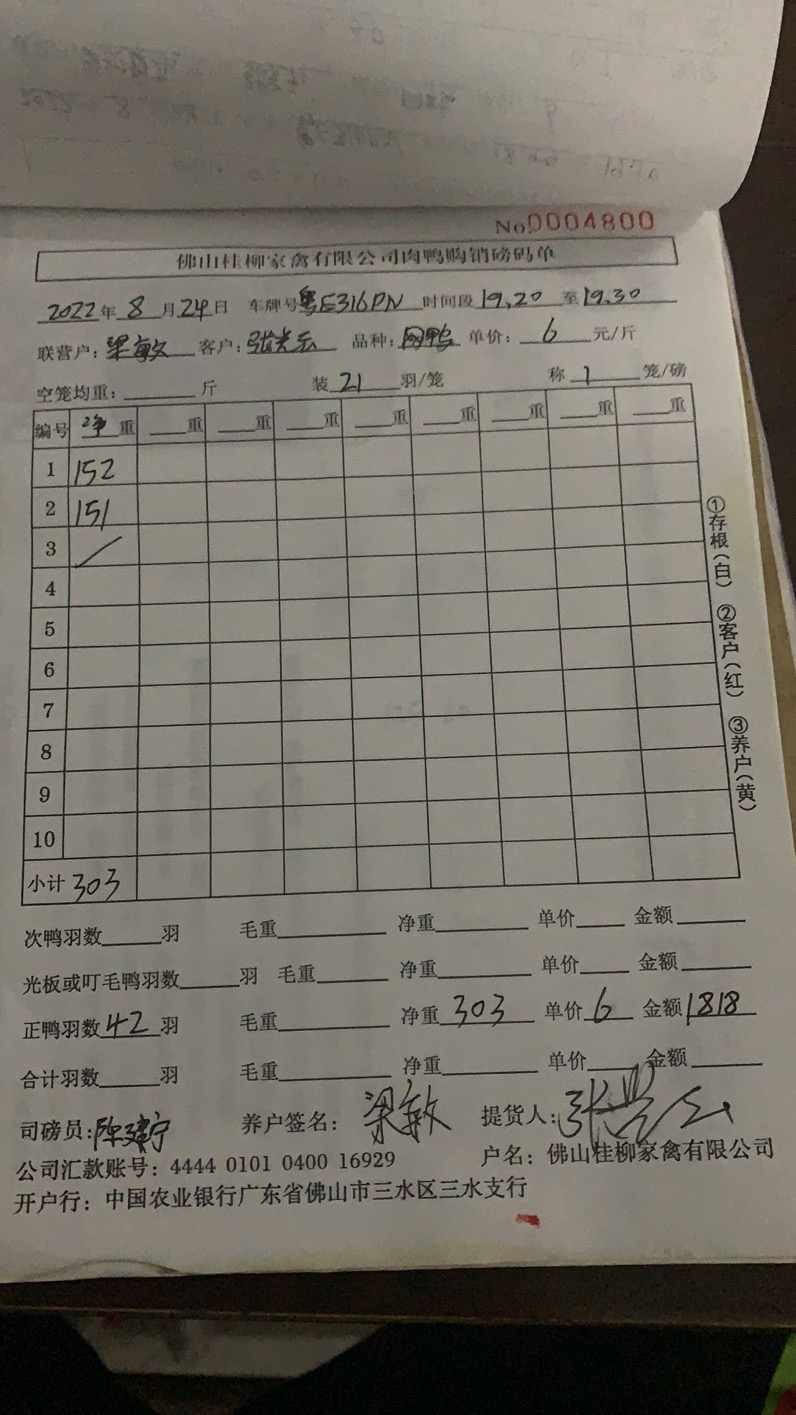 No.0004800
佛山桂柳家禽有限公司肉鸭购销磅码单
2022年8月24日 车牌号粤E316PN 时间段19,20至19,30
联营户:梁敏 客户:张兴云 品种: 网鸭 单价: 6 元/斤
空笼均重:______斤 装21羽/笼 称1笼/磅
编号 净重 __重 __重 __重 __重 __重 __重 __重 __重
1 152
2 151
3 /
4
5
6
7
8
9
10
小计 303
①存根(白) ②客户(红) ③养户(黄)
次鸭羽数____羽 毛重____ 净重____ 单价____ 金额____
光板或叮毛鸭羽数____羽 毛重____ 净重____ 单价____ 金额____
正鸭羽数42羽 毛重____ 净重303 单价6 金额1818
合计羽数____羽 毛重____ 净重____ 单价____ 金额____
司磅员:陈建宁 养户签名: 梁敏 提货人:张兴云
公司汇款账号: 4444 0101 0400 16929 户名: 佛山桂柳家禽有限公司
开户行: 中国农业银行广东省佛山市三水区三水支行